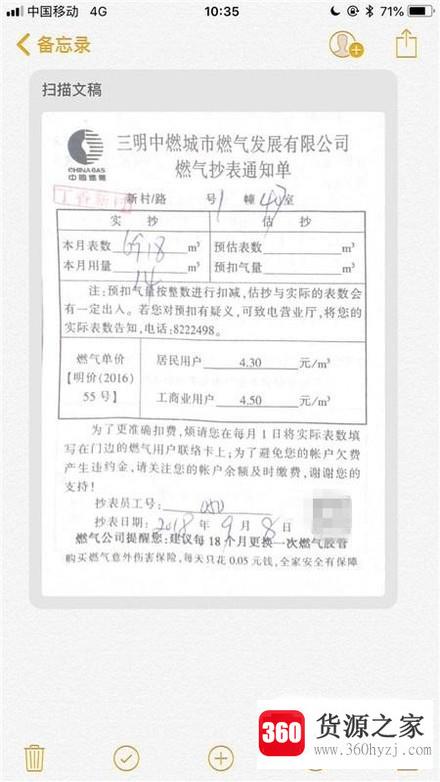 中国移动 4G 10:35 71%
备忘录
扫描文稿
CHINA GAS
中国燃气
三明中燃城市燃气发展有限公司
燃气抄表通知单
新村/路 号1 幢 室
实 抄 估 抄
本月表数 6918 m³ 预估表数 m³
本月用量 14 m³ 预扣气量 m³
注:预扣气量按整数进行扣减,估抄与实际的表数会
有一定出入。若您对预扣有疑义,可致电营业厅,将您的
实际表数告知,电话:8222498。
燃气单价 居民用户 4.30 元/m³
【明价(2016)
55号】 工商业用户 4.50 元/m³
为了更准确扣费,烦请您在每月1日将实际表数填
写在门边的燃气用户联络卡上;为了避免您的帐户欠费
产生违约金,请关注您的帐户余额及时缴费,谢谢您的
支持!
抄表员工号: 050
抄表日期:2018 年 9 月 8 日
燃气公司提醒您:建议每18个月更换一次燃气胶管
购买燃气意外伤害保险,每天只花0.05元钱,全家安全有保障
360 货源之家
www.360hyzj.com